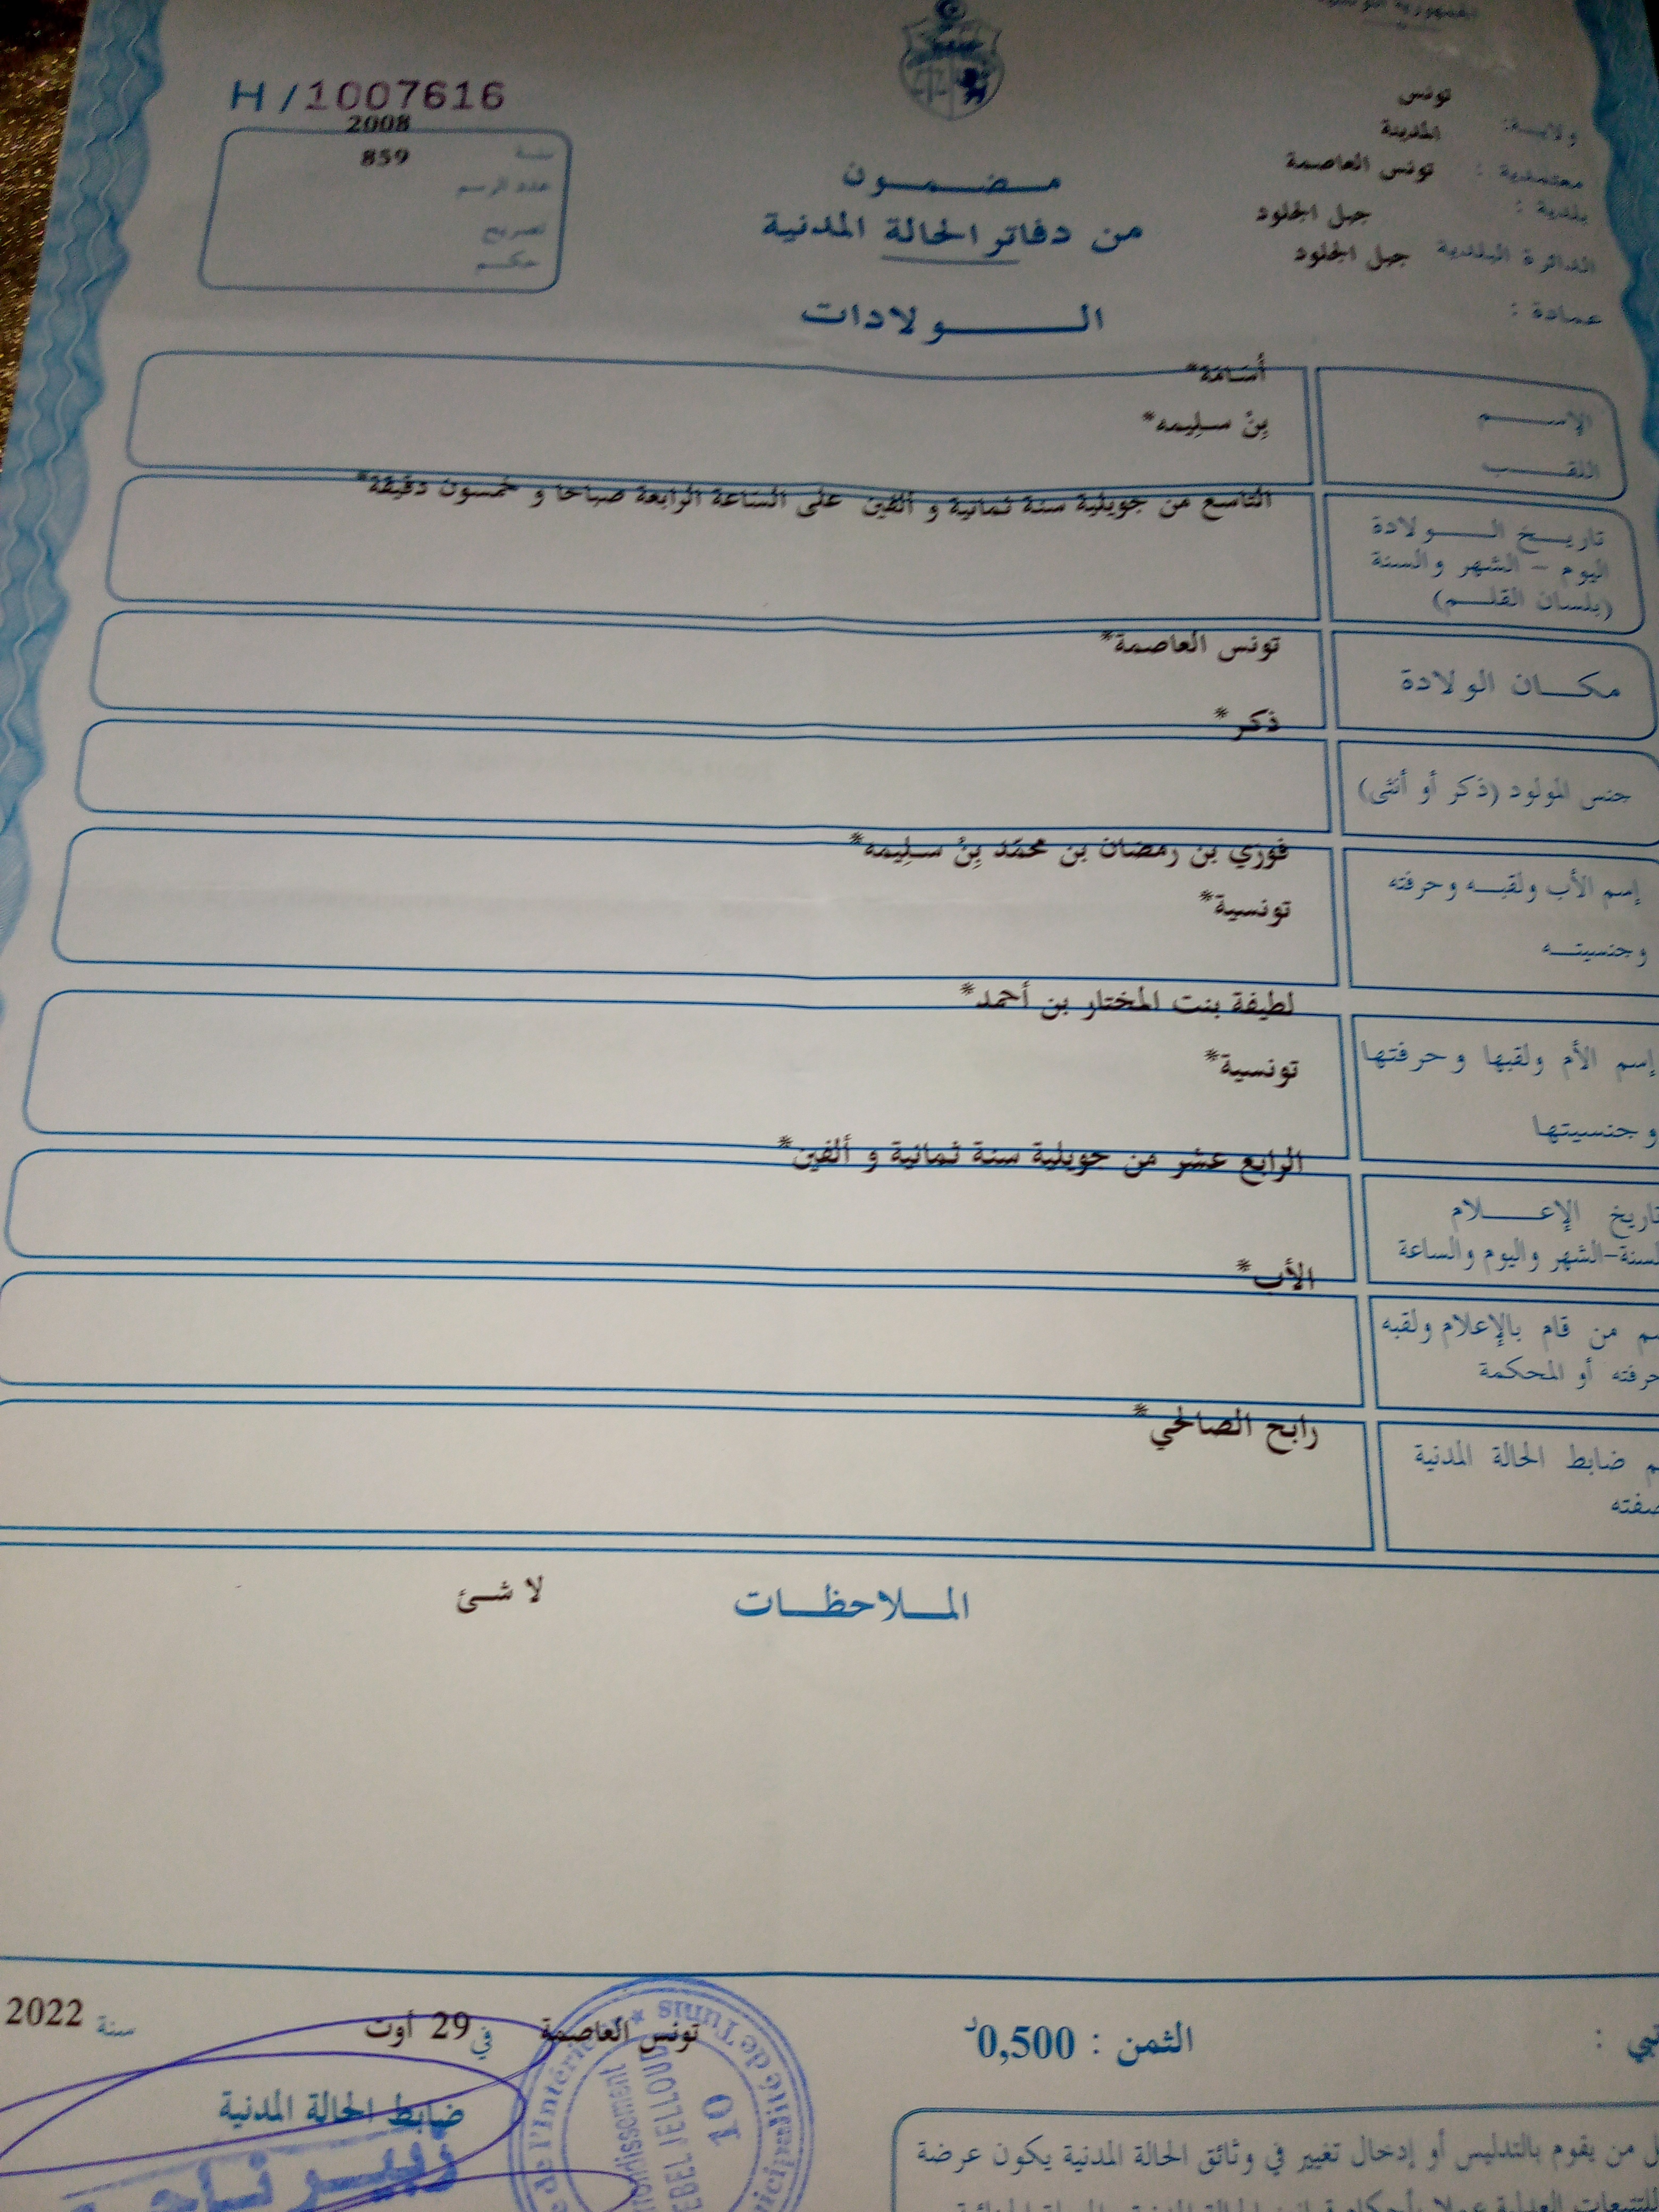 الجمهورية التونسية
H/1007616
ولاية: تونس
معتمدية : المدينة
بلدية : تونس العاصمة
الدائرة البلدية جبل الجلود
جبل الجلود
عمادة :
سنة 2008
عدد الرسم 859
تصريح
حكم
مضمون
من دفاتر الحالة المدنية
الولادات
الإسم أسامة*
اللقب بِنْ سلِيمه*
تاريخ الولادة
اليوم - الشهر والسنة
(بلسان القلم)
التاسع من جويلية سنة ثمانية و ألفين على الساعة الرابعة صباحا و خمسون دقيقة*
مكان الولادة تونس العاصمة*
جنس المولود (ذكر أو أنثى) ذكر*
إسم الأب ولقبه وحرفته فوزي بن رمضان بن محمّد بِنْ سلِيمه*
وجنسيته تونسية*
إسم الأم ولقبها وحرفتها لطيفة بنت المختار بن أحمد*
وجنسيتها تونسية*
تاريخ الإعلام الرابع عشر من جويلية سنة ثمانية و ألفين*
السنة-الشهر واليوم والساعة
من قام بالإعلام ولقبه الأب*
حرفته أو المحكمة
ضابط الحالة المدنية رابح الصالحي*
صفته
الملاحظات لا شئ
الثمن : 0,500د
تونس العاصمة في 29 أوت سنة 2022
ضابط الحالة المدنية
من يقوم بالتدليس أو إدخال تغيير في وثائق الحالة المدنية يكون عرضة
de l'Intérieur * Municipalité de Tunis
JEBEL JELLOUD
10